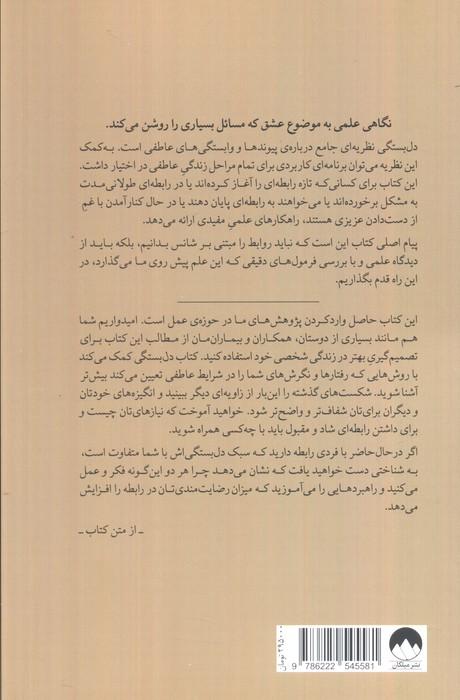 نگاهی علمی به موضوع عشق که مسائل بسیاری را روشن می‌کند.
دل‌بستگی نظریه‌ای جامع درباره‌ی پیوندها و وابستگی‌های عاطفی است. به‌کمک
این نظریه می‌توان برنامه‌ای کاربردی برای تمام مراحل زندگیِ عاطفی در اختیار داشت.
این کتاب برای کسانی‌که تازه رابطه‌ای را آغاز کرده‌اند یا در رابطه‌ای طولانی‌مدت
به مشکل برخورده‌اند یا می‌خواهند به رابطه‌ای پایان دهند یا در حال کنارآمدن با غمِ
از دست‌دادن عزیزی هستند، راهکارهای علمیِ مفیدی ارائه می‌دهد.
پیام اصلی کتاب این است که نباید روابط را مبتنی بر شانس بدانیم، بلکه باید از
دیدگاه علمی و با بررسی فرمول‌های دقیقی که این علم پیش روی ما می‌گذارد، در
این راه قدم بگذاریم.
این کتاب حاصل واردکردن پژوهش‌های ما در حوزه‌ی عمل است. امیدواریم شما
هم مانند بسیاری از دوستان، همکاران و بیماران‌مان از مطالب این کتاب برای
تصمیم‌گیریِ بهتر در زندگی شخصی خود استفاده کنید. کتاب دل‌بستگی کمک می‌کند
با روش‌هایی که رفتارها و نگرش‌های شما را در شرایط عاطفی تعیین می‌کند بیش‌تر
آشنا شوید. شکست‌های گذشته را این‌بار از زاویه‌ای دیگر ببینید و انگیزه‌های خودتان
و دیگران برای‌تان شفاف‌تر و واضح‌تر شود. خواهید آموخت که نیازهای‌تان چیست و
برای داشتن رابطه‌ای شاد و مقبول باید با چه‌کسی همراه شوید.
اگر در‌حال‌حاضر با فردی رابطه دارید که سبک دل‌بستگی‌اش با شما متفاوت است،
به شناختی دست خواهید یافت که نشان می‌دهد چرا هر دو این‌گونه فکر و عمل
می‌کنید و راهبردهایی را می‌آموزید که میزان رضایت‌مندی‌تان در رابطه را افزایش
می‌دهد.
ـ از متن کتاب ـ
۲۹۵۰۰۰ تومان
9 786222 545581
نشر میلکان